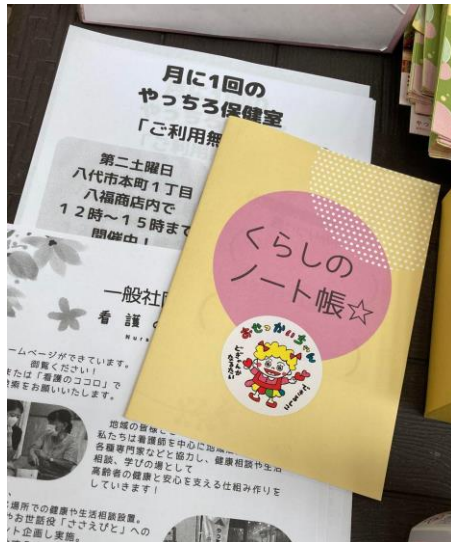 月に1回の
やっちろ保健室
「ご利用無
第二土曜日
八代市本町1丁目
八福商店内で
12時〜15時まで
開催中!
くらしの
ノート帳☆
おせっかいちゃん
一般社
看護
ームページができています。
御覧ください!
または「看護のココロ」で
検索をお願いいたします。
地域の皆様と
私たちは看護師を中心に地域
各種専門家などと協力し、健康相談や生活
相談、学びの場として
高齢者の健康と安心を支える仕組み作りを
していきます!
場所での健康や生活相談設置。
やお世話役「ささえびと」への
ト企画し実施。